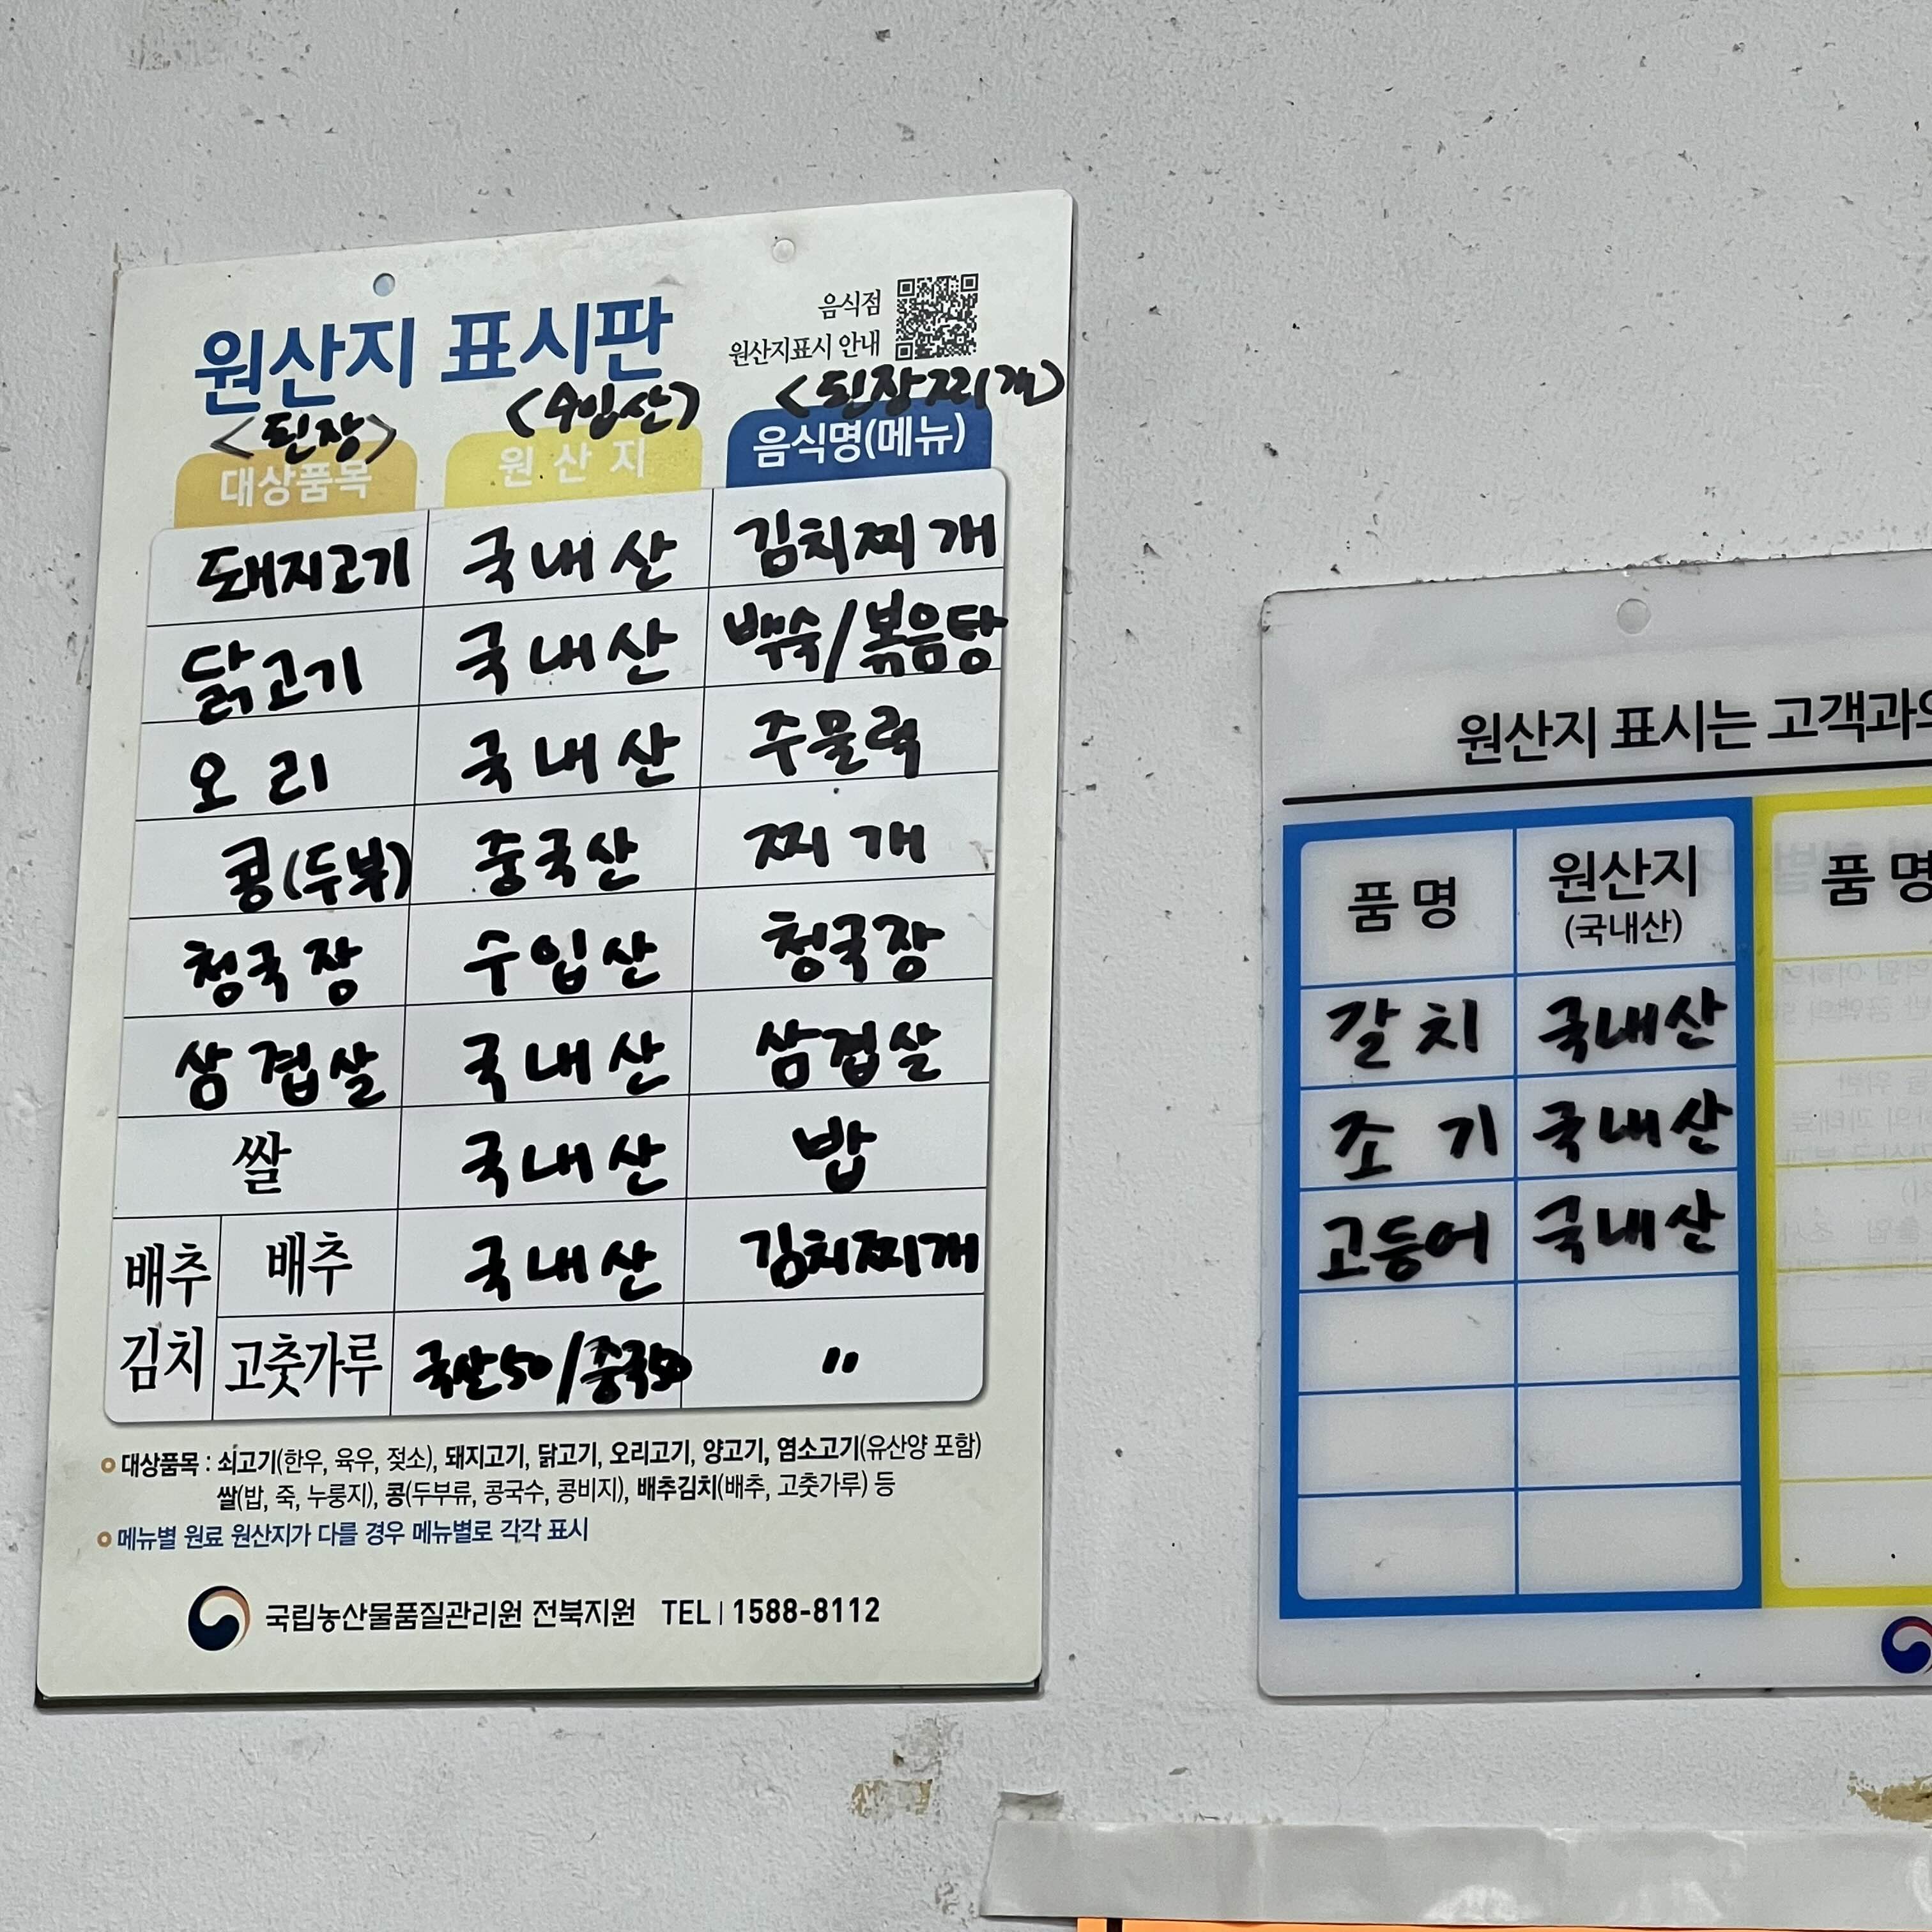 원산지 표시판
음식점
원산지표시 안내
<된장> <수입산> <된장찌개>
대상품목 원산지 음식명(메뉴)
돼지고기 국내산 김치찌개
닭고기 국내산 백숙/볶음탕
오리 국내산 주물럭
콩(두부) 중국산 찌개
청국장 수입산 청국장
삼겹살 국내산 삼겹살
쌀 국내산 밥
배추김치 배추 국내산 김치찌개
고춧가루 국산50/중국50 "
대상품목 : 쇠고기(한우, 육우, 젖소), 돼지고기, 닭고기, 오리고기, 양고기, 염소고기(유산양 포함)
쌀(밥, 죽, 누룽지), 콩(두부류, 콩국수, 콩비지), 배추김치(배추, 고춧가루) 등
메뉴별 원료 원산지가 다를 경우 메뉴별로 각각 표시
국립농산물품질관리원 전북지원 TEL | 1588-8112
원산지 표시는 고객과의
품명 원산지 품명
(국내산)
갈치 국내산
조기 국내산
고등어 국내산